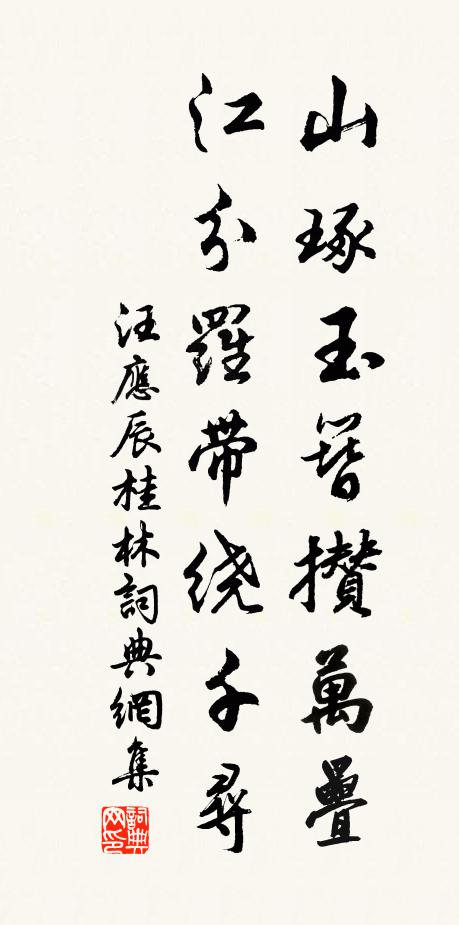 山琢玉簪攅萬疊
江分羅帶绕千尋
汪應辰桂林詞典網集
詞典网印